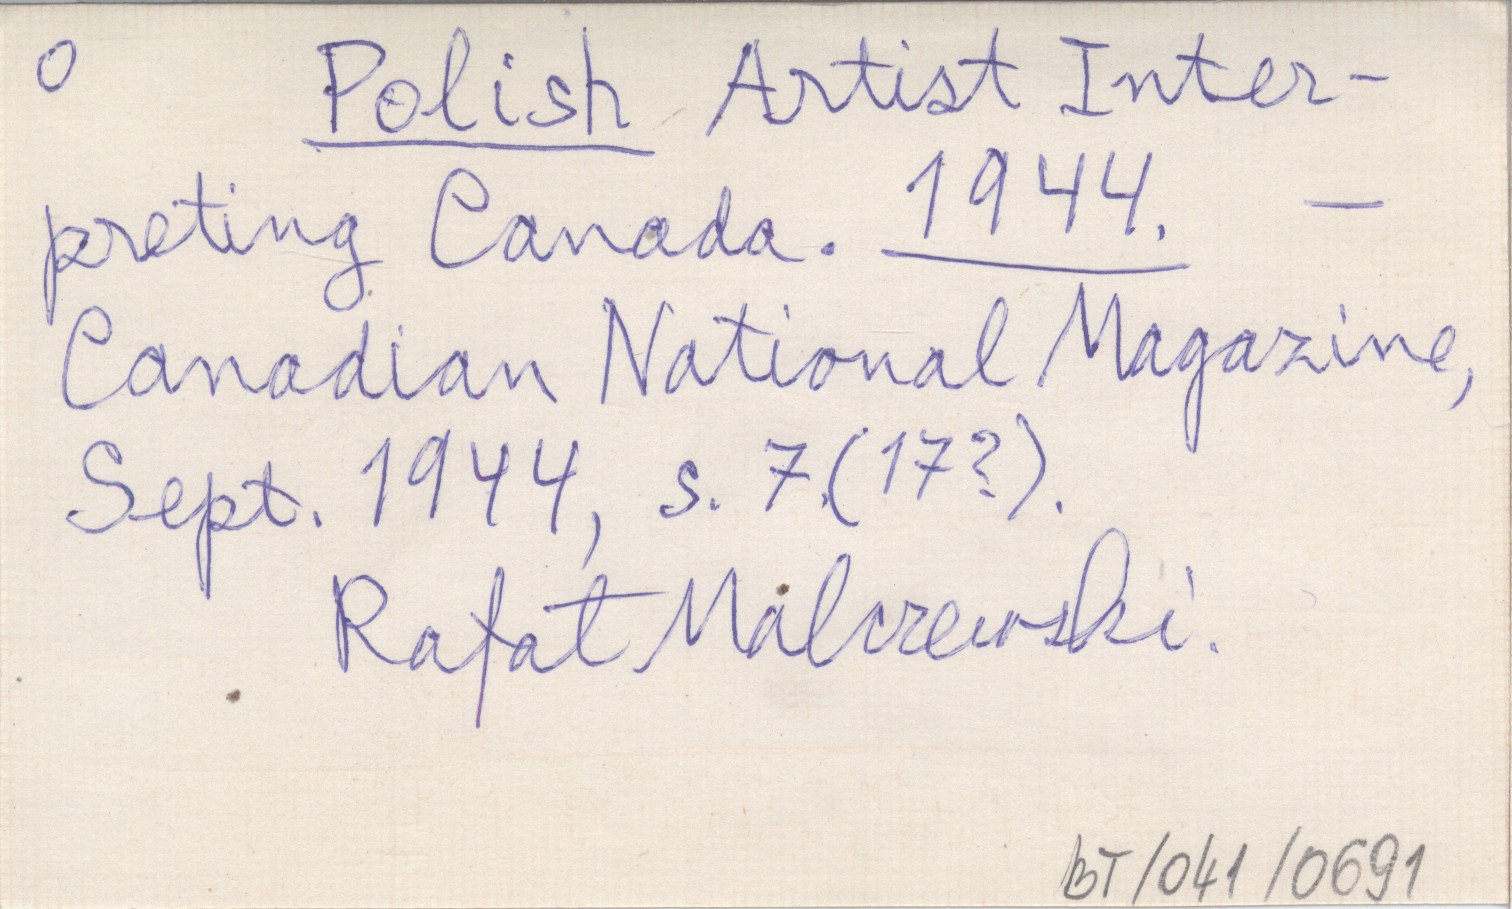 O Polish Artist Inter-
preting Canada. 1944. —
Canadian National Magazine,
Sept. 1944, s. 7.(17?).
Rafał Malczewski.
BT/041/0691